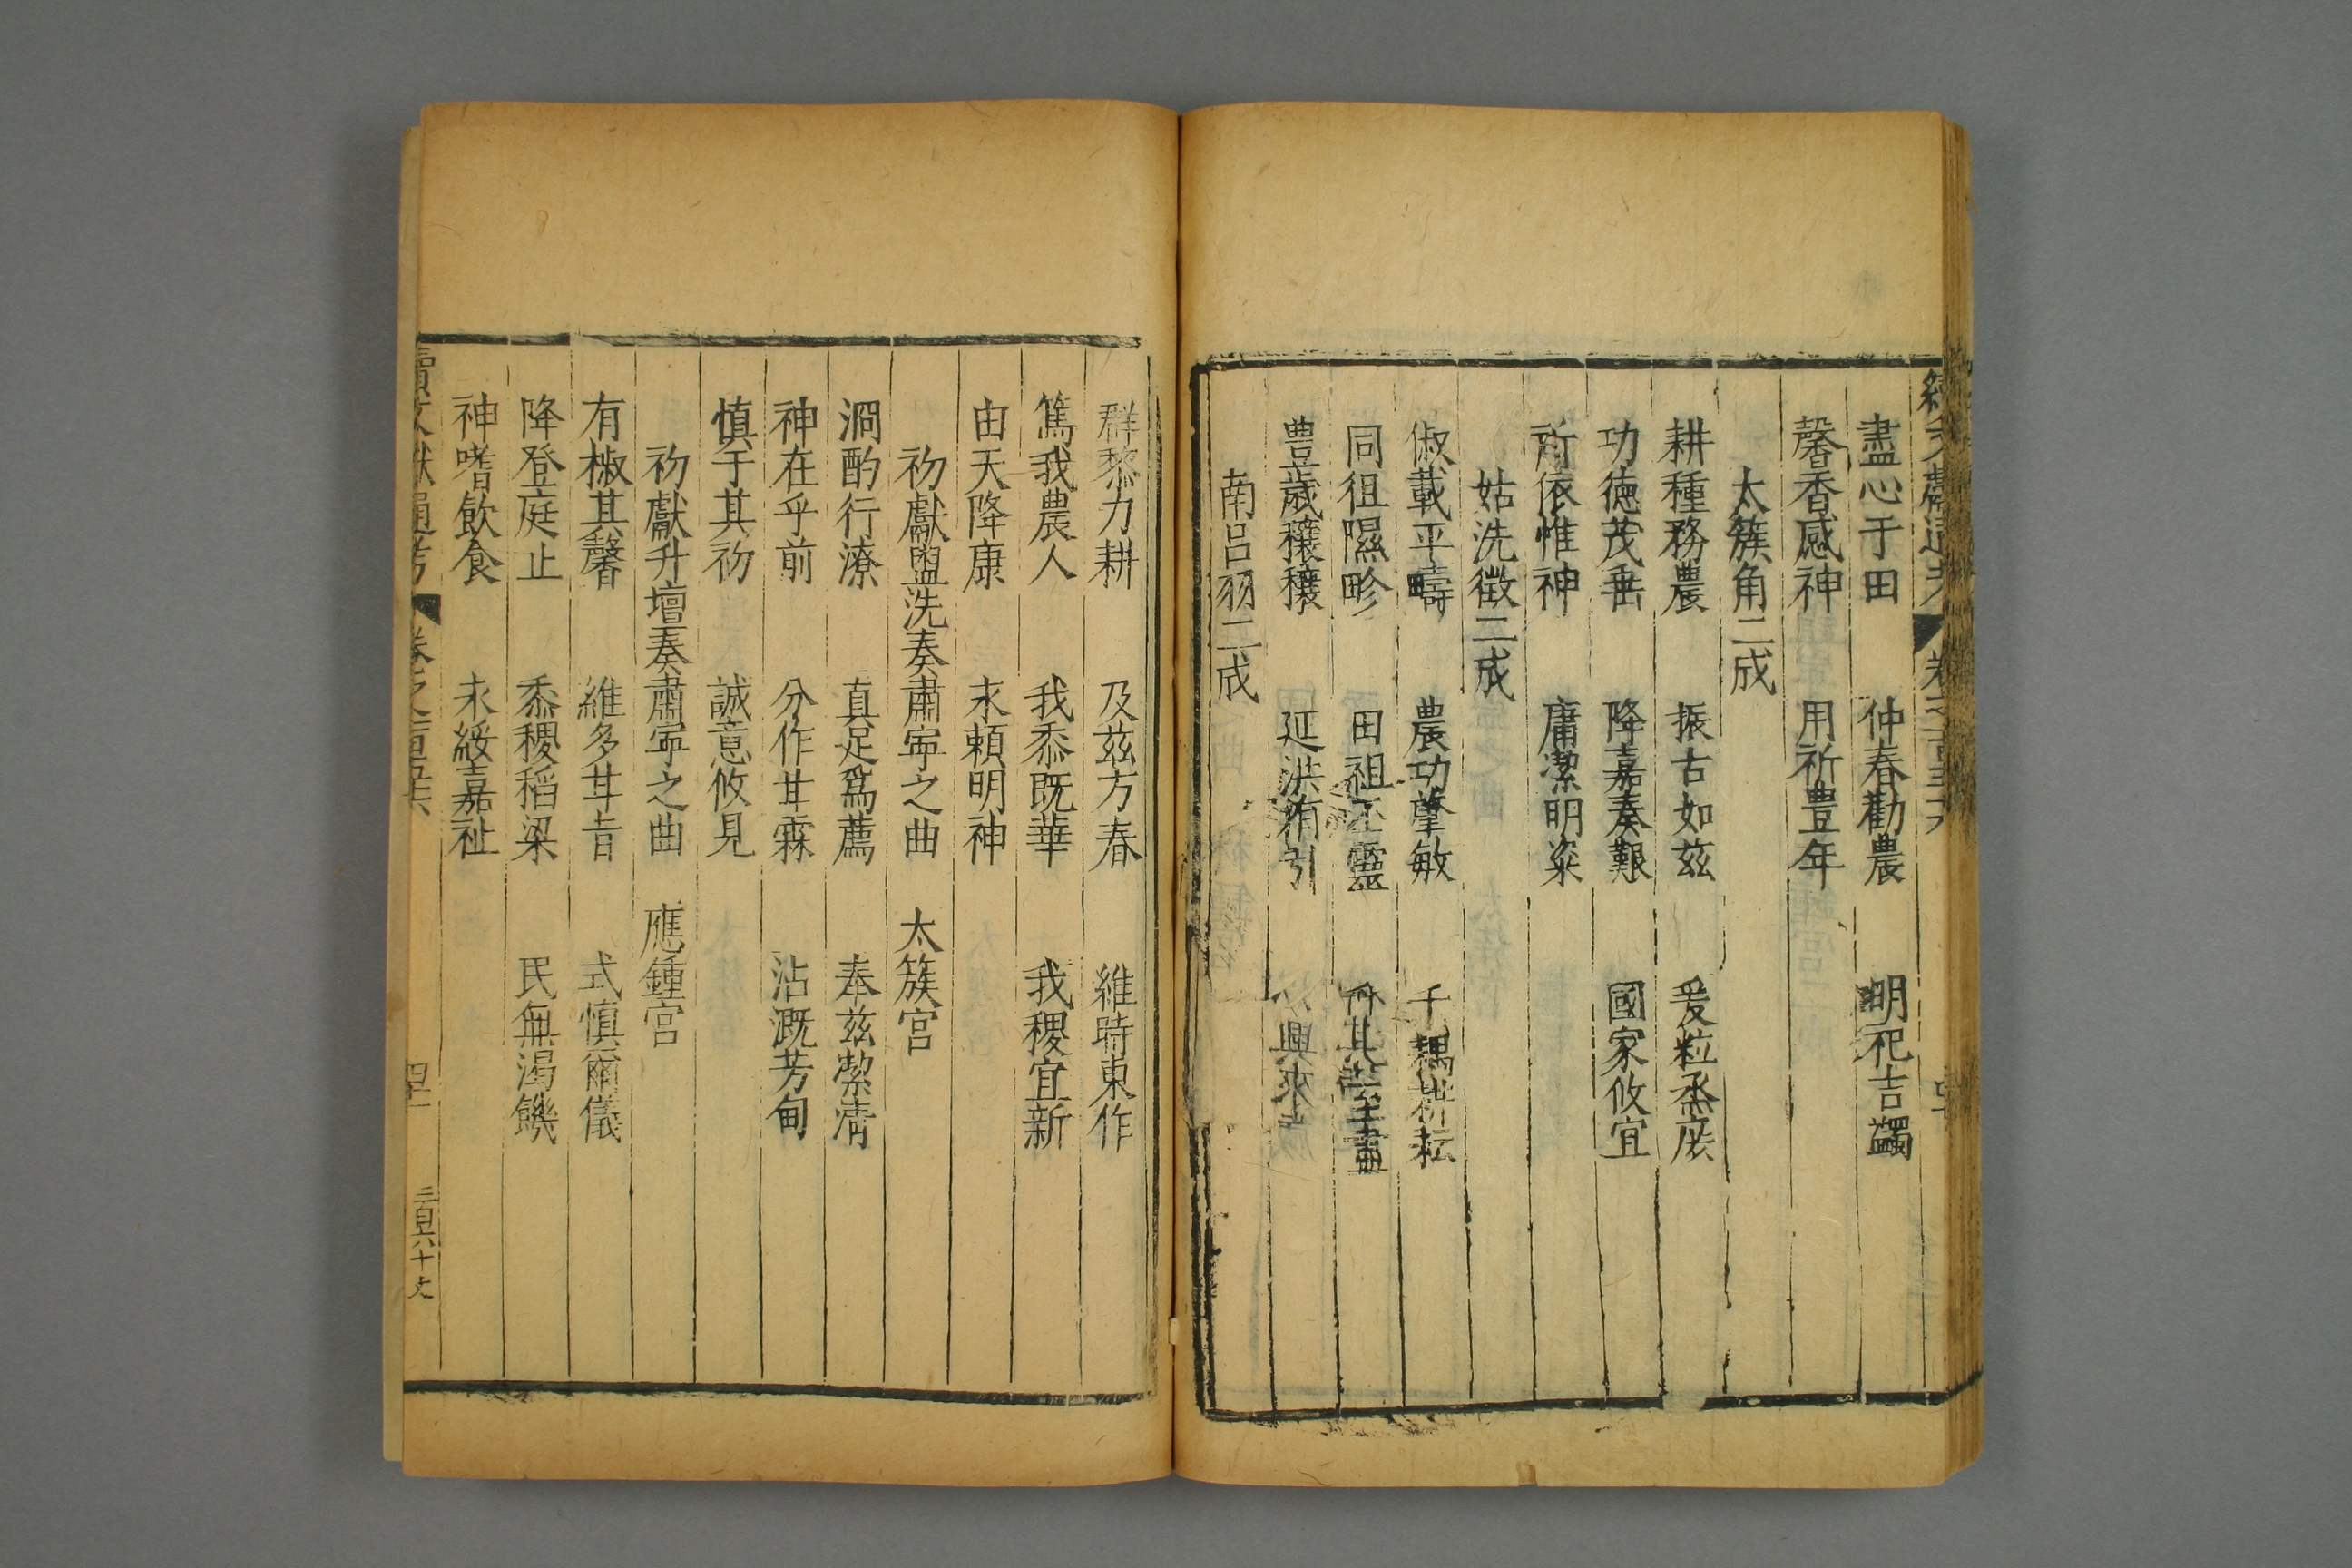 盡心于田　仲春勸農　明祀吉蠲
馨香感神　用祈豊年
太簇角二成
耕種務農　振古如茲　爰粒烝
功德茂垂　降嘉奏艱　國家攸宜
所依惟神　庸潔明粢
姑洗徵二成
俶載平疇　農功肇敏　千耦耘
同徂隰畛　田祖丕靈　其
豊歲穰穰　延洪有引　興來
南呂羽二成
群黎力耕　及茲方春　維時東作
篤我農人　我黍既華　我稷宜新
由天降康　永賴明神
初獻盥洗奏肅寧之曲　太簇宮
泂酌行潦　真足爲薦　奉茲潔清
神在乎前　分作甘霖　沾溉芳甸
慎于其初　誠意攸見
初獻升壇奏肅寧之曲　應鍾宮
有椒其馨　維多且旨　式慎爾儀
降登庭止　黍稷稻粱　民無渴饑
神嗜飲食　永綏嘉祉
三百六十丈